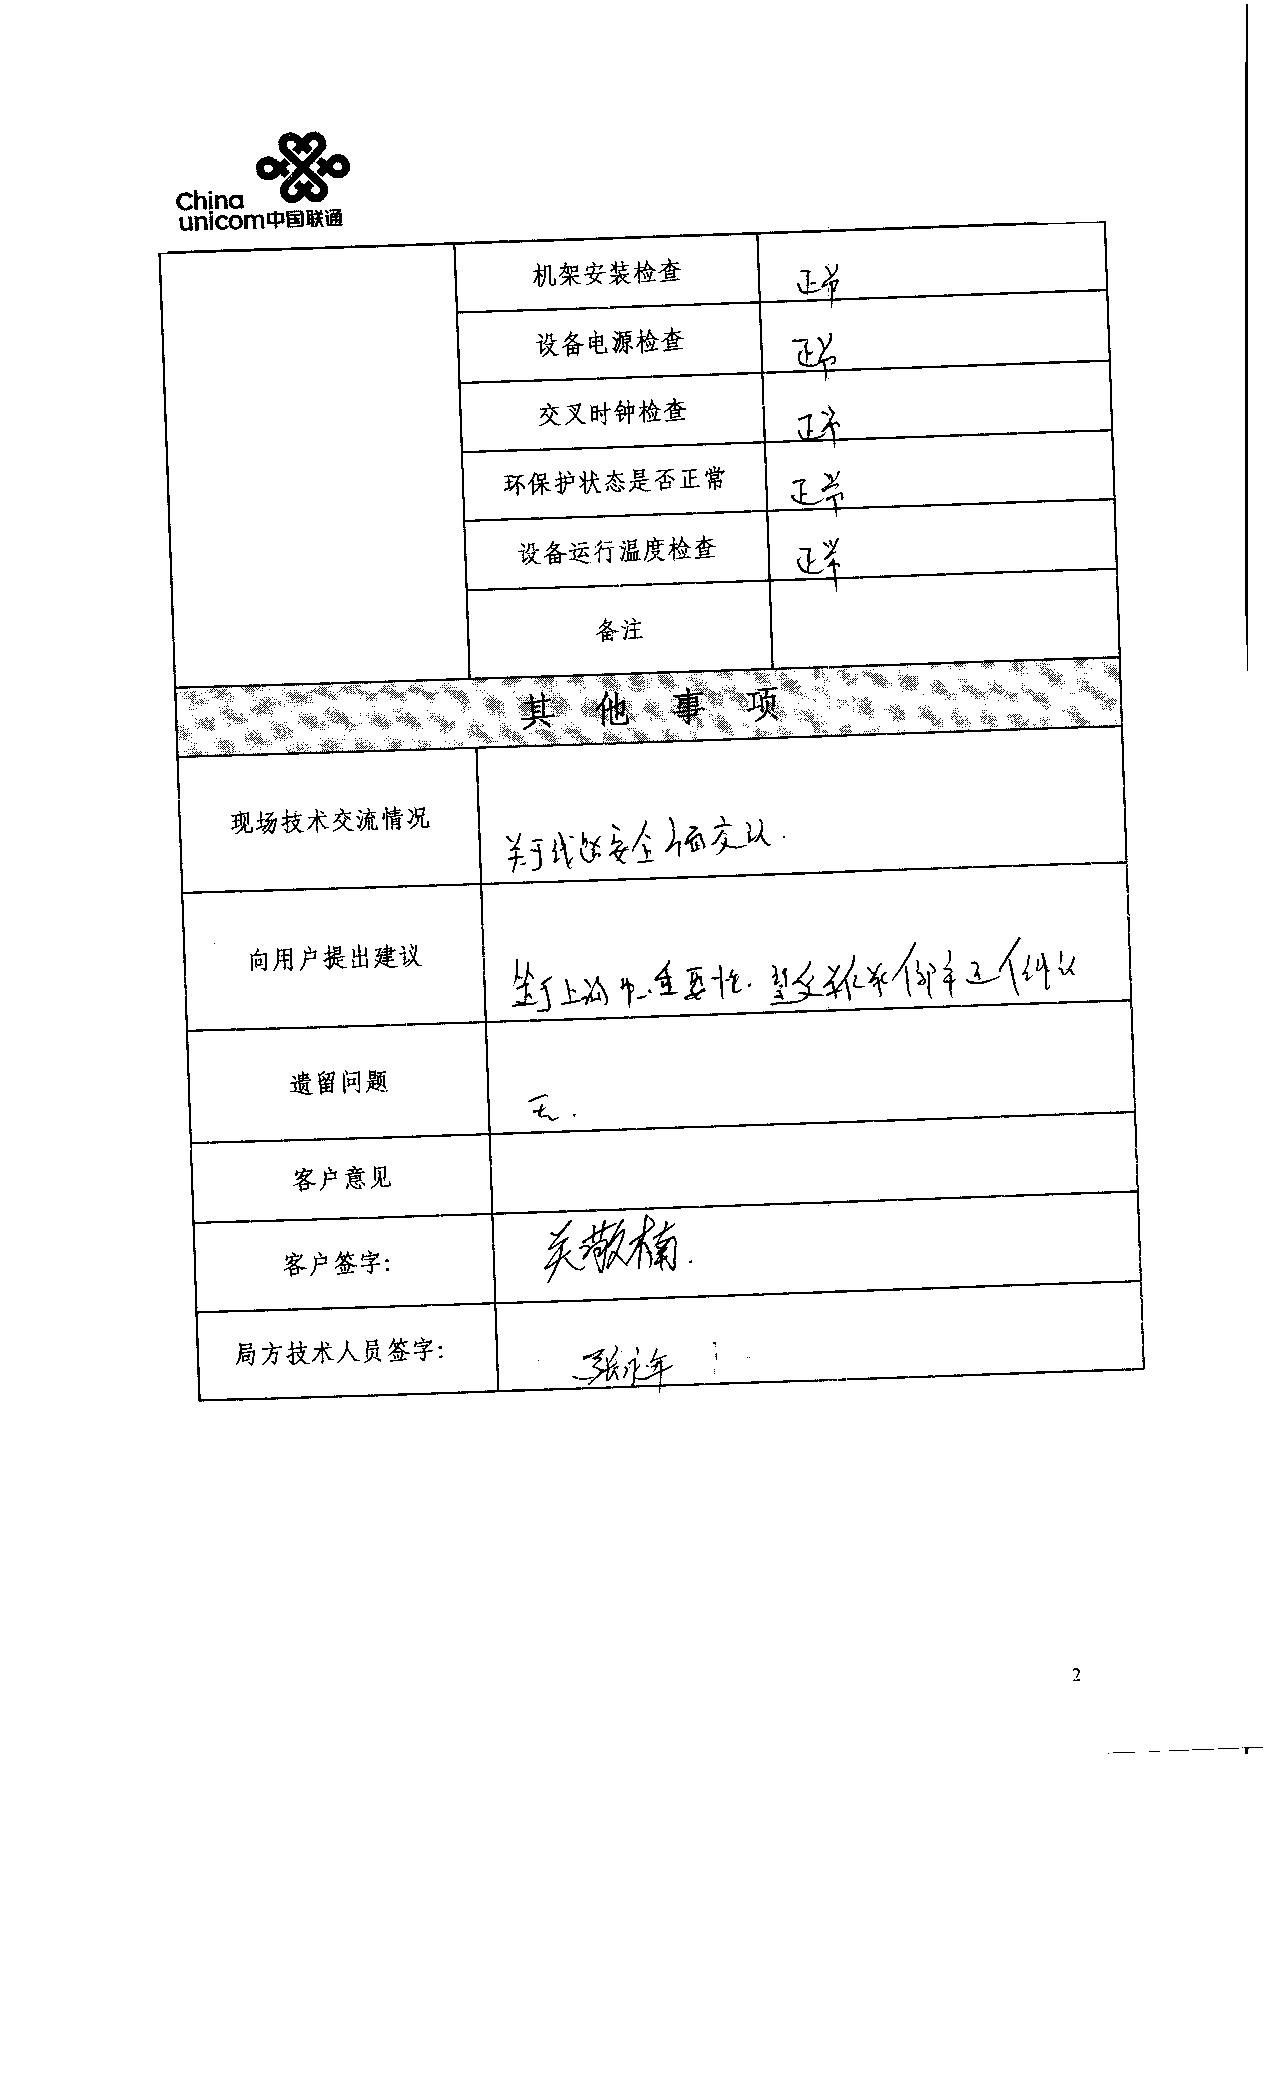 China
unicom中国联通
机架安装检查 正常
设备电源检查 正常
交叉时钟检查 正常
环保护状态是否正常 正常
设备运行温度检查 正常
备注
其他事项
现场技术交流情况 关于线路安全方面交认.
向用户提出建议 鉴于上海 重要性.
遗留问题 无.
客户意见
客户签字: 关敬楠.
局方技术人员签字: 张永年
2